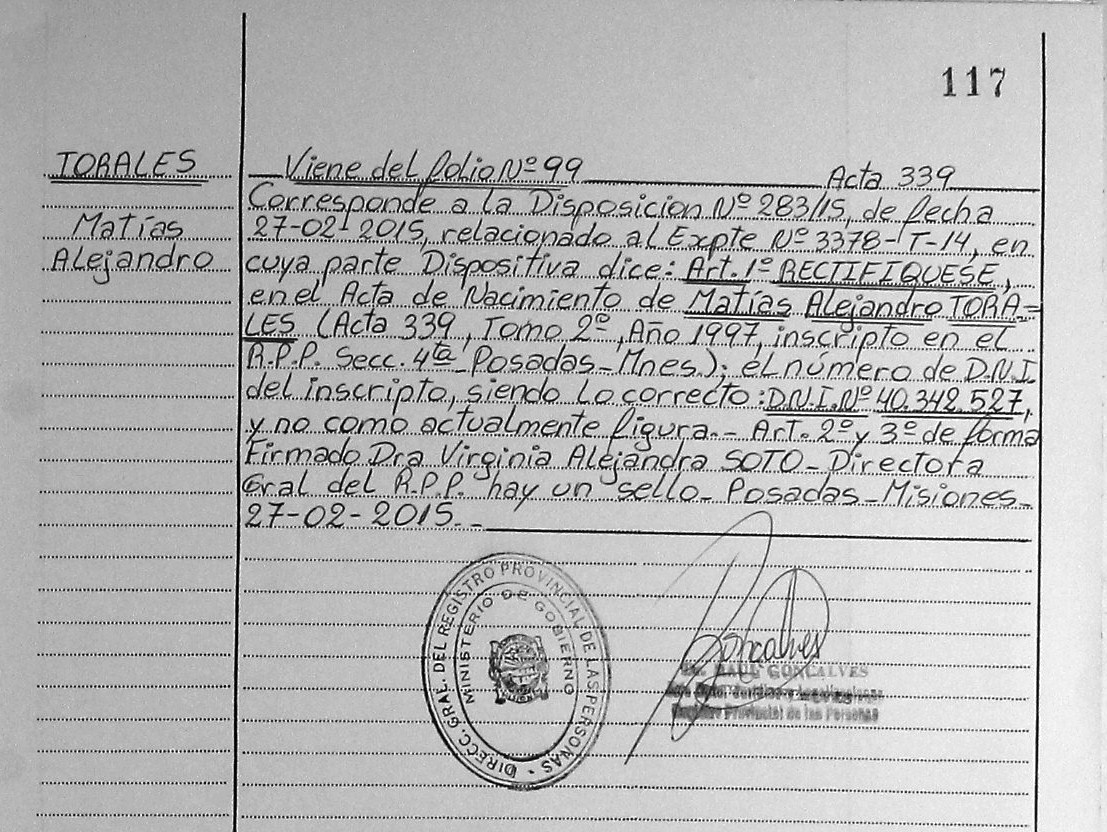 117
TORALES
Matías
Alejandro
Viene del folio Nº 99 Acta 339
Corresponde a la Disposicion Nº 283/15, de fecha
27-02-2015, relacionado al Expte Nº 3378-T-14, en
cuya parte Dispositiva dice: Art. 1º RECTIFIQUESE,
en el Acta de Nacimiento de Matías Alejandro TORA-
LES (Acta 339, Tomo 2º, Año 1997, inscripto en el
R.P.P. Secc. 4ta Posadas-Mnes.); el número de D.N.I
del inscripto, siendo lo correcto: D.N.I. Nº 40.342.527,
y no como actualmente figura.- Art. 2º y 3º de forma
Firmado Dra Virginia Alejandra SOTO-Directora
Gral del R.P.P. hay un sello-Posadas-Misiones-
27-02-2015.-
DIRECC. GRAL. DEL REGISTRO PROVINCIAL DE LAS PERSONAS
MINISTERIO DE GOBIERNO
Goncalves
RAUL GONCALVES
Registro Provincial de las Personas